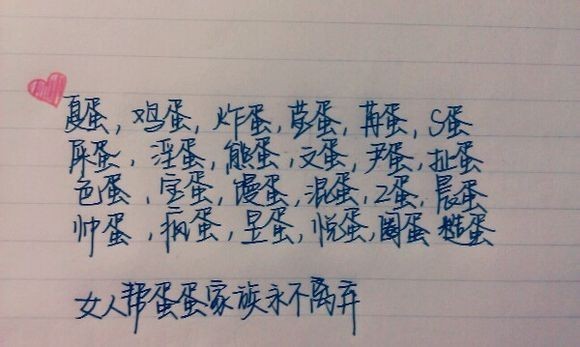 夏蛋，鸡蛋，炸蛋，莹蛋，苒蛋，S蛋
屎蛋，淫蛋，熊蛋，文蛋，尹蛋，扯蛋
色蛋，宝蛋，馒蛋，混蛋，2蛋，晨蛋
帅蛋，疯蛋，呈蛋，悦蛋，圈蛋 糙蛋
女人帮蛋蛋家族永不离弃